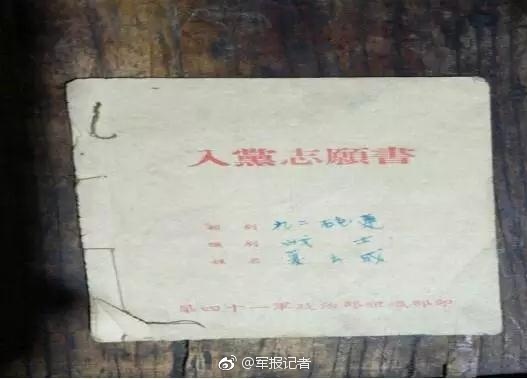 入黨志願書
別 九二砲連
級別 战士
姓名 云成
第四十一軍政治部組織部印
@军报记者